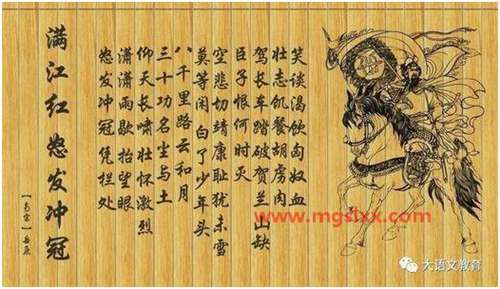 满江红 怒发冲冠
【南宋】岳飞
怒发冲冠凭栏处
潇潇雨歇抬望眼
仰天长啸壮怀激烈
三十功名尘与土
八千里路云和月
莫等闲白了少年头
空悲切靖康耻犹未雪
臣子恨何时灭
驾长车踏破贺兰山缺
壮志饥餐胡虏肉
笑谈渴饮匈奴血
www.mgslxx.com
大语文教育